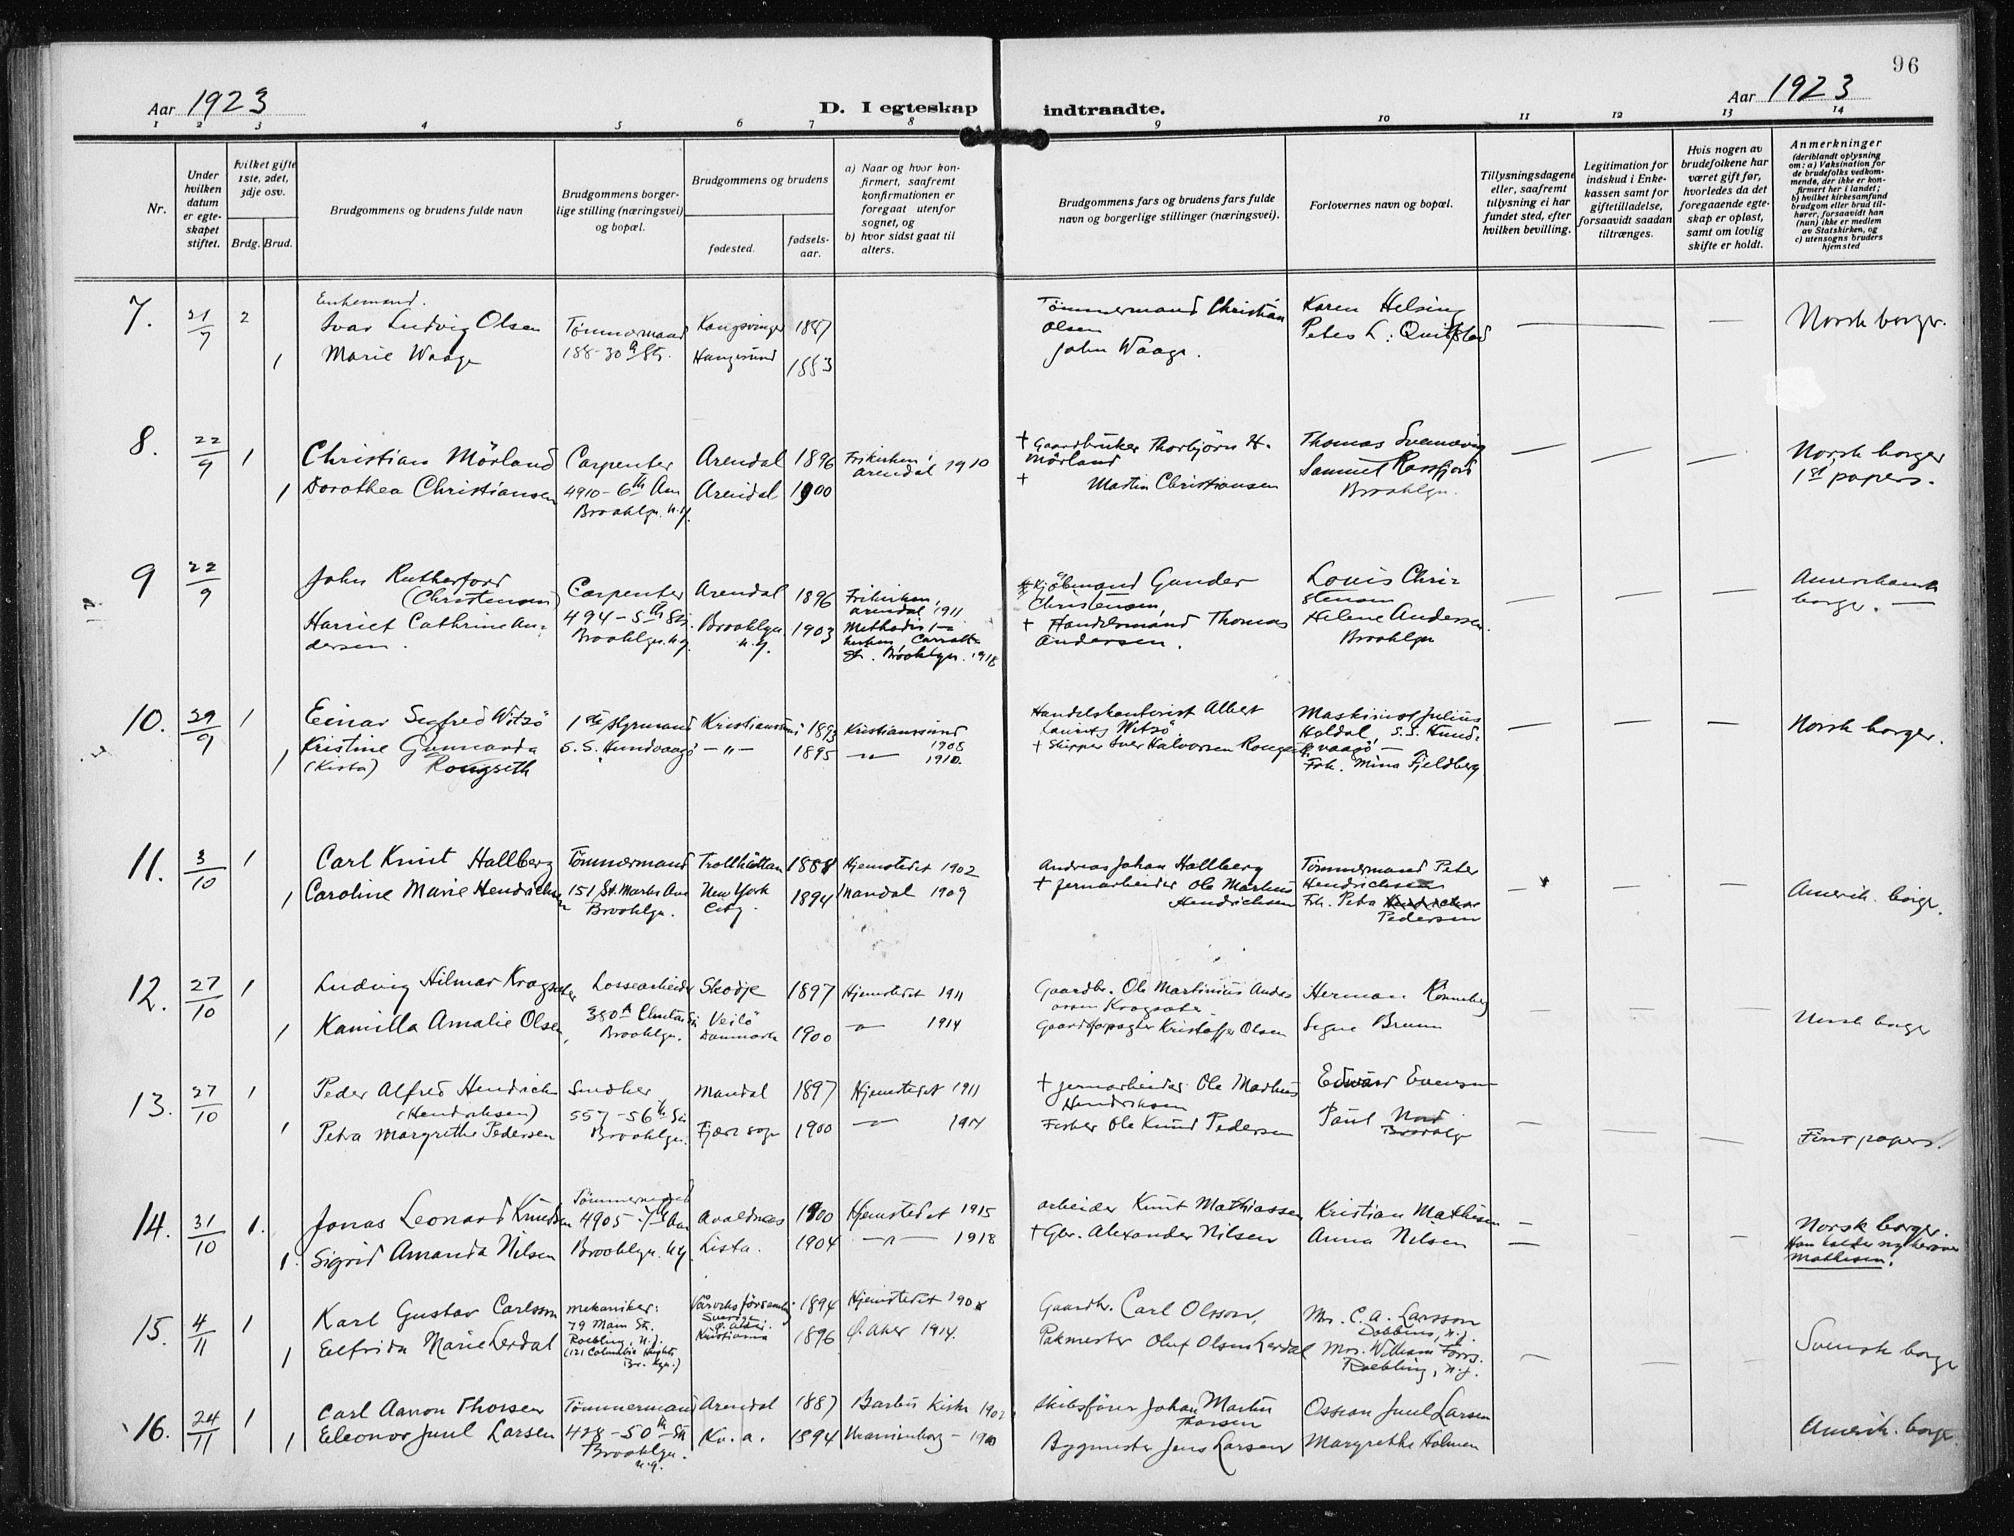 96
Aar 1923
D. I egteskap
indtraadte.
Aar 1923
1 2 3 4 5 6 7 8 9 10 11 12 13 14
Nr.
Under hvilken datum er egteskapet stiftet.
Hvilket gifte 1ste, 2det, 3dje osv.
Brdg. Brud.
Brudgommens og brudens fulde navn
Brudgommens borgerlige stilling (næringsvei) og bopæl.
Brudgommens og brudens
fødested.
fødselsaar.
a) Naar og hvor konfirmert, saafremt konfirmationen er foregaat utenfor sognet, og
b) hvor sidst gaat til alters.
Brudgommens fars og brudens fars fulde navn og borgerlige stillinger (næringsvei).
Forlovernes navn og bopæl.
Tillysningsdagene eller, saafremt tillysning ei har fundet sted, efter hvilken bevilling.
Legitimation for indskud i Enkekassen samt for giftetilladelse, forsaavidt saadan tiltrænges.
Hvis nogen av brudefolkene har været gift før, hvorledes da det foregaaende egteskap er opløst, samt om lovlig skifte er holdt.
Anmerkninger
(deriblandt oplysning om: a) Vaksination for de brudefolks vedkommende, der ikke er konfirmert her i landet; b) hvilket kirkesamfund brudgom eller brud tilhører, forsaavidt han (hun) ikke er medlem av Statskirken, og c) utensogns bruders hjemsted
7. 21/7 2
Enkemand.
Ivar Ludvig Olsen Tømmermand Kongsvinger 1887
Tømmermand Christian Olsen
Karen Helsing
Marie Waage 188-30th Str. Haugesund 1883
1
John Waage.
Peter L. Quifstad
Norsk borger.
8. 22/9 1
Christian Mörland Carpenter Arendal 1896 Frikirken i Arendal 1910
+ Gaardbruker Thorbjörn H. Mörland
Thomas Svennevig
1 Dorothea Christiansen 4910-6th Ave Brooklyn N.Y. Arendal 1900
+ Martin Christiansen
Samuel Rossfjord
Brooklyn.
Norsk borger
1st papers.
9 22/9
John Rutherford (Christensen) Carpenter Arendal 1896 Frikirken, Arendal 1911
+ Kjøbmand Gunder Christensen,
Louis Christensen
Harriet Cathrine Andersen. 494-5th Str. Brooklyn N.Y. Brooklyn N.Y. 1903 Methodistkirken Carroll St. Brooklyn. 1918
+ Handelsmand Thomas Andersen.
Helene Andersen.
Brooklyn
Amerikansk borger. —
10. 29/9 1
Einar Sigfred Witsö 1ste styrmand Kristianssund 1893 Kristianssund 1908
Handelskontorist Albert Laurits Witsö
Maskinist Julius Holdal, S.S. Hundvaagö —
1 Kristine Gunnarda (Kista) Rongseth S.S. Hundvaagö — " — 1895 — " — 1910.
+ Skipper Iver Halvorsen Rongseth
Frk. Mina Fjeldberg
Norsk borger.
11. 3/10 1
Carl Knut Hallberg Tömmermand Trollhättan 1888 Hjemstedet 1902
Andreas Johan Hallberg
Tömmermand Peter Hendrichsen
1 Caroline Marie Hendrichsen 151 St. Marks Ave Brooklyn. New York City. 1894 Mandal 1909
+ jernarbeider Ole Martinus Hendrichsen
Frk. Petra Pedersen
Amerik. borger.
12. 27/10 1
Ludvig Hilmar Kragseter Lossearbeider Skodje 1897 Hjemstedet 1911
Gaardbr. Ole Martinius Andreassen Kragseter
Herman Rönneberg
1 Kamilla Amalie Olsen, 380A Clinton Str. Brooklyn. Veilö Danmark 1900 — " — 1914
Gaardforpagter Kristoffer Olsen
Signe Bruun
Norsk borger
13. 27/10 1
Peder Alfred Hendrich (Hendrichsen) Snedker Mandal 1897 Hjemstedet 1911
+ jernarbeider Ole Martinus Hendriksen
Edward Evensen
1 Petra Margrethe Pedersen 557-56th Str Brooklyn. Fjære sogn 1900 — " — 1914
Fisker Ole Knud Pedersen
Paul Nord
Brooklyn
First papers.
14. 31/10 1.
Jonas Leonard Knudsen Tömmermand 4905-7th Ave Avaldnes 1900 Hjemstedet 1915
arbeider Knut Mathiassen
Kristian Mathisen
1. Sigrid Amanda Nilsen Brooklyn. N.Y. Lista. 1904 — " — 1918
+ Gbr. Alexander Nilsen
Anna Nilsen
Norsk borger.
Han kalder sig herover
Mathisen.
15. 4/11 1
Karl Gustav Carlsson Mekaniker: 79 Main Str. Roebling, N.J. 1894 Hjemstedet 1908
Gaardbr. Carl Olsson,
Mrs. C. A. Larsson
Dobbins, N.J.
1 Eelfrida Marie Lerdal (121 Columbia Heights Br. kyn.) Kristiania 1896 Ø. Aker 1914.
Pakmester Oluf Olsen Lerdal
Mrs. William Forrs.
Roebling, N.J.
Svensk borger
16. 24/11 1
Carl Aanon Thorsen Tömmermand Arendal 1887 Barbu Kirke 1902
Skibsfører Johan Martin Thorsen
Ossian Juul Larsen
1 Eleonor Juul Larsen 428-50th Str Brooklyn. N.Y. Kr.a. 1894 Uranienborg — 1910
Bygmester Jens Larsen
Margrethe Holmen
Amerik. borger